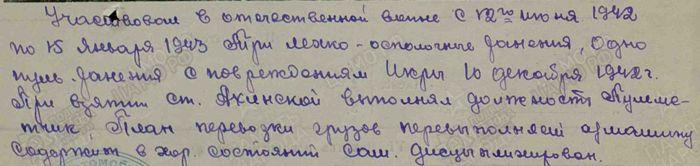 Участвовал в отечественной воине с 12го июня 1942
по 15 января 1943 Три легко-осколочные ранения, Одно
пуль. ранения с повреждениям Икры 10 декабря 1942г.
При взятии ст. Акинской выполнял должность Пулеме-
тчик План перевозки грузов перевыполняет автомашину
содержит в хор. состоянии Сам. дисцыплинирован.